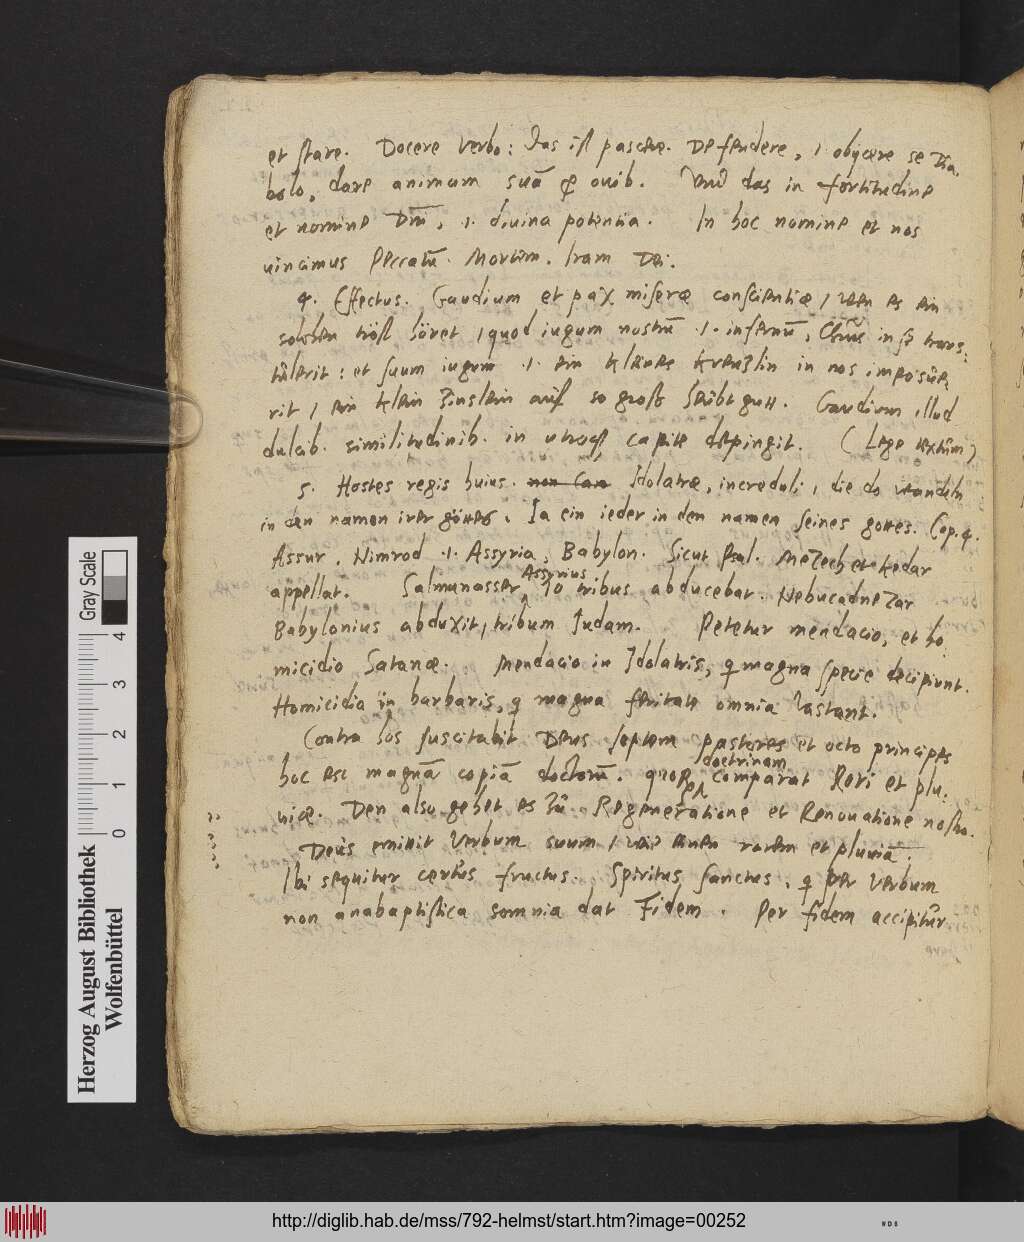 et stare. Docere verbo: Das ist pascere. Defendere, .i. obijcere se Dia,
bolo, dare animam suā ꝓ ovib. Und das in fortitudine
et nomine Dnī, .i. divina potentia. In hoc nomine et nos
vincimus Peccatū. Mortem. Iram Dei.
4. Effectus. Gaudium et pax miseræ conscientiæ, wen es ein
solchen tröst höret, quod iugum nostrū .i. infernū, Chrūs in se trans:
tulerit: et suum iugum .i. ein kleines kreutzlin in nos imposue,
rit, ein klein Zinslein auf so groß haubtgutt. Gaudium illud
dulcib. similitudinib. in utroqꝫ capite depingit. (Lege textum)
5. Hostes regis huius. non Can Idolatræ, increduli, die do wandeln
in den namen irer götter. Ja ein ieder in dem namen seines gottes. Cap. 4.
Assur, Nimrod .i. Assyria, Babylon. Sicut Psal. Mezech et Kedar
appellat. Salmanasser Assyrius 10 tribus abducebat. Nebucadnezar
Babylonius abduxit, tribum Judam. Petetur mendacio, et ho,
micidio Satanæ. Mendacio in Idolatris, q magna specie decipiunt.
Homicidia in barbaris, q magna feritate omnia vastant.
Contra hos suscitabit Deus septem pastores et octo principes
hoc est magnā copiā doctorū. quoꝝ doctrinam comparat Rori et plu:
viæ. Den also gehet es zu Regeneratione et Renovatione nostra.
Deus emittit verbum suum, wie einen rorem et pluviā.
Ibi sequitur certus fructus. Spiritus sanctus, q per verbum
non anabaptistica somnia dat Fidem. Per fidem accipitur
Gray Scale
0 1 2 3 4
Herzog August Bibliothek
Wolfenbüttel
http://diglib.hab.de/mss/792-helmst/start.htm?image=00252